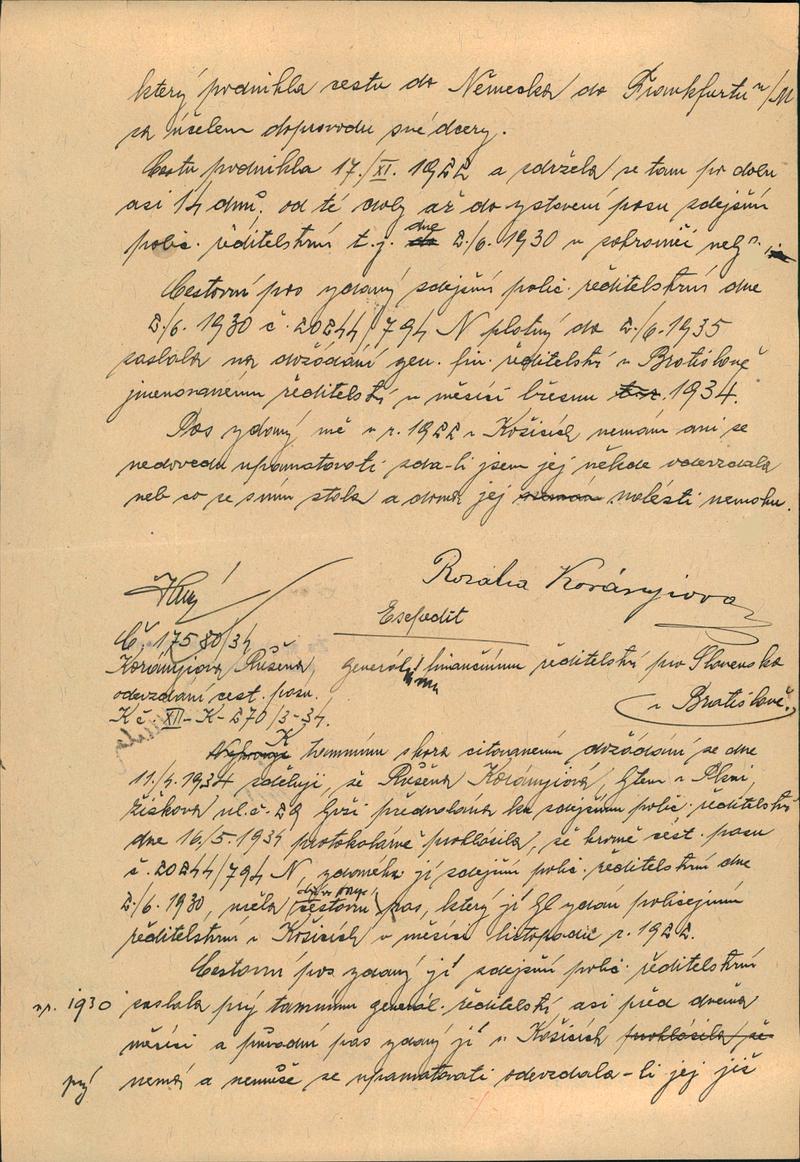 který podnikla cestu do Německa do Frankfurtu n/M
za účelem doprovodu své dcery.
Cestu podnikla 17./XI. 1922 a zdržela se tam po dobu
asi 14 dnů, od té doby až do vystavení pasu zdejším
polic. ředitelstvím t. j. dne 2./6. 1930 v zahraničí
Cestovní pas vydaný zdejším polic. ředitelstvím dne
2./6. 1930 č. 20244/794 N platný do 2./6. 1935
zaslala na dožádání gen. fin. ředitelství v Bratislavě
jmenovanému ředitelství v měsíci březnu 1934.
Pas vydaný mě v r. 1922 v Košicích nemám ani se
nedovedu upamatovati zda-li jsem jej někde odevzdala
neb co se s ním stalo a doma jej nalésti nemohu.
Rozalia Korányiova
Expedit
Č. 17580/34
Korányiova Růžena, generál. finančnímu ředitelství pro Slovensko
odevzdání cest. pasu.
v Bratislavě.
K č. XII-K-270/3-34.
K tamnímu shora citovanému dožádání ze dne
11./4. 1934 sděluji, že Růžena Korányiová, bytem v Plzni,
Žižkova ul. č. 29 byvší předvolána ku zdejšímu polic. ředitelství
dne 16./5. 1934 protokolárně prohlásila, že kromě cest. pasu
č. 20244/794 N, vydaného jí zdejším polic. ředitelstvím dne
2./6. 1930, měla cestovní pas, který jí byl vydán policejním
ředitelstvím v Košicích v měsíci listopadu r. 1922.
Cestovní pas vydaný jí zdejším polic. ředitelstvím
v r. 1930 zaslala prý tamnímu generál. ředitelství, asi před dvěma
měsíci a původní pas vydaný jí v Košicích prohlásila, že
prý nemá a nemůže se upamatovati odevzdala-li jej již